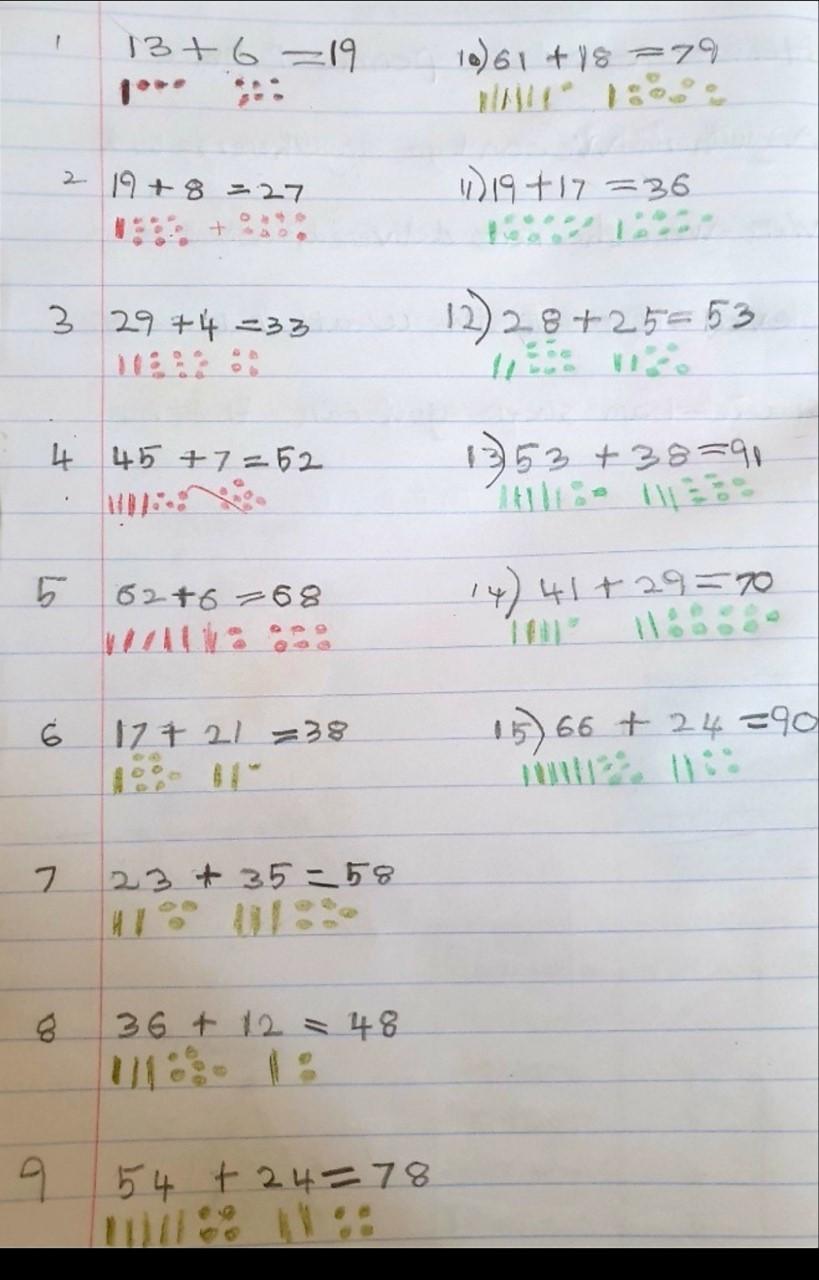 1 13 + 6 = 19
2 19 + 8 = 27
3 29 + 4 = 33
4 45 + 7 = 52
5 62 + 6 = 68
6 17 + 21 = 38
7 23 + 35 = 58
8 36 + 12 = 48
9 54 + 24 = 78
10) 61 + 18 = 79
11) 19 + 17 = 36
12) 28 + 25 = 53
13) 53 + 38 = 91
14) 41 + 29 = 70
15) 66 + 24 = 90